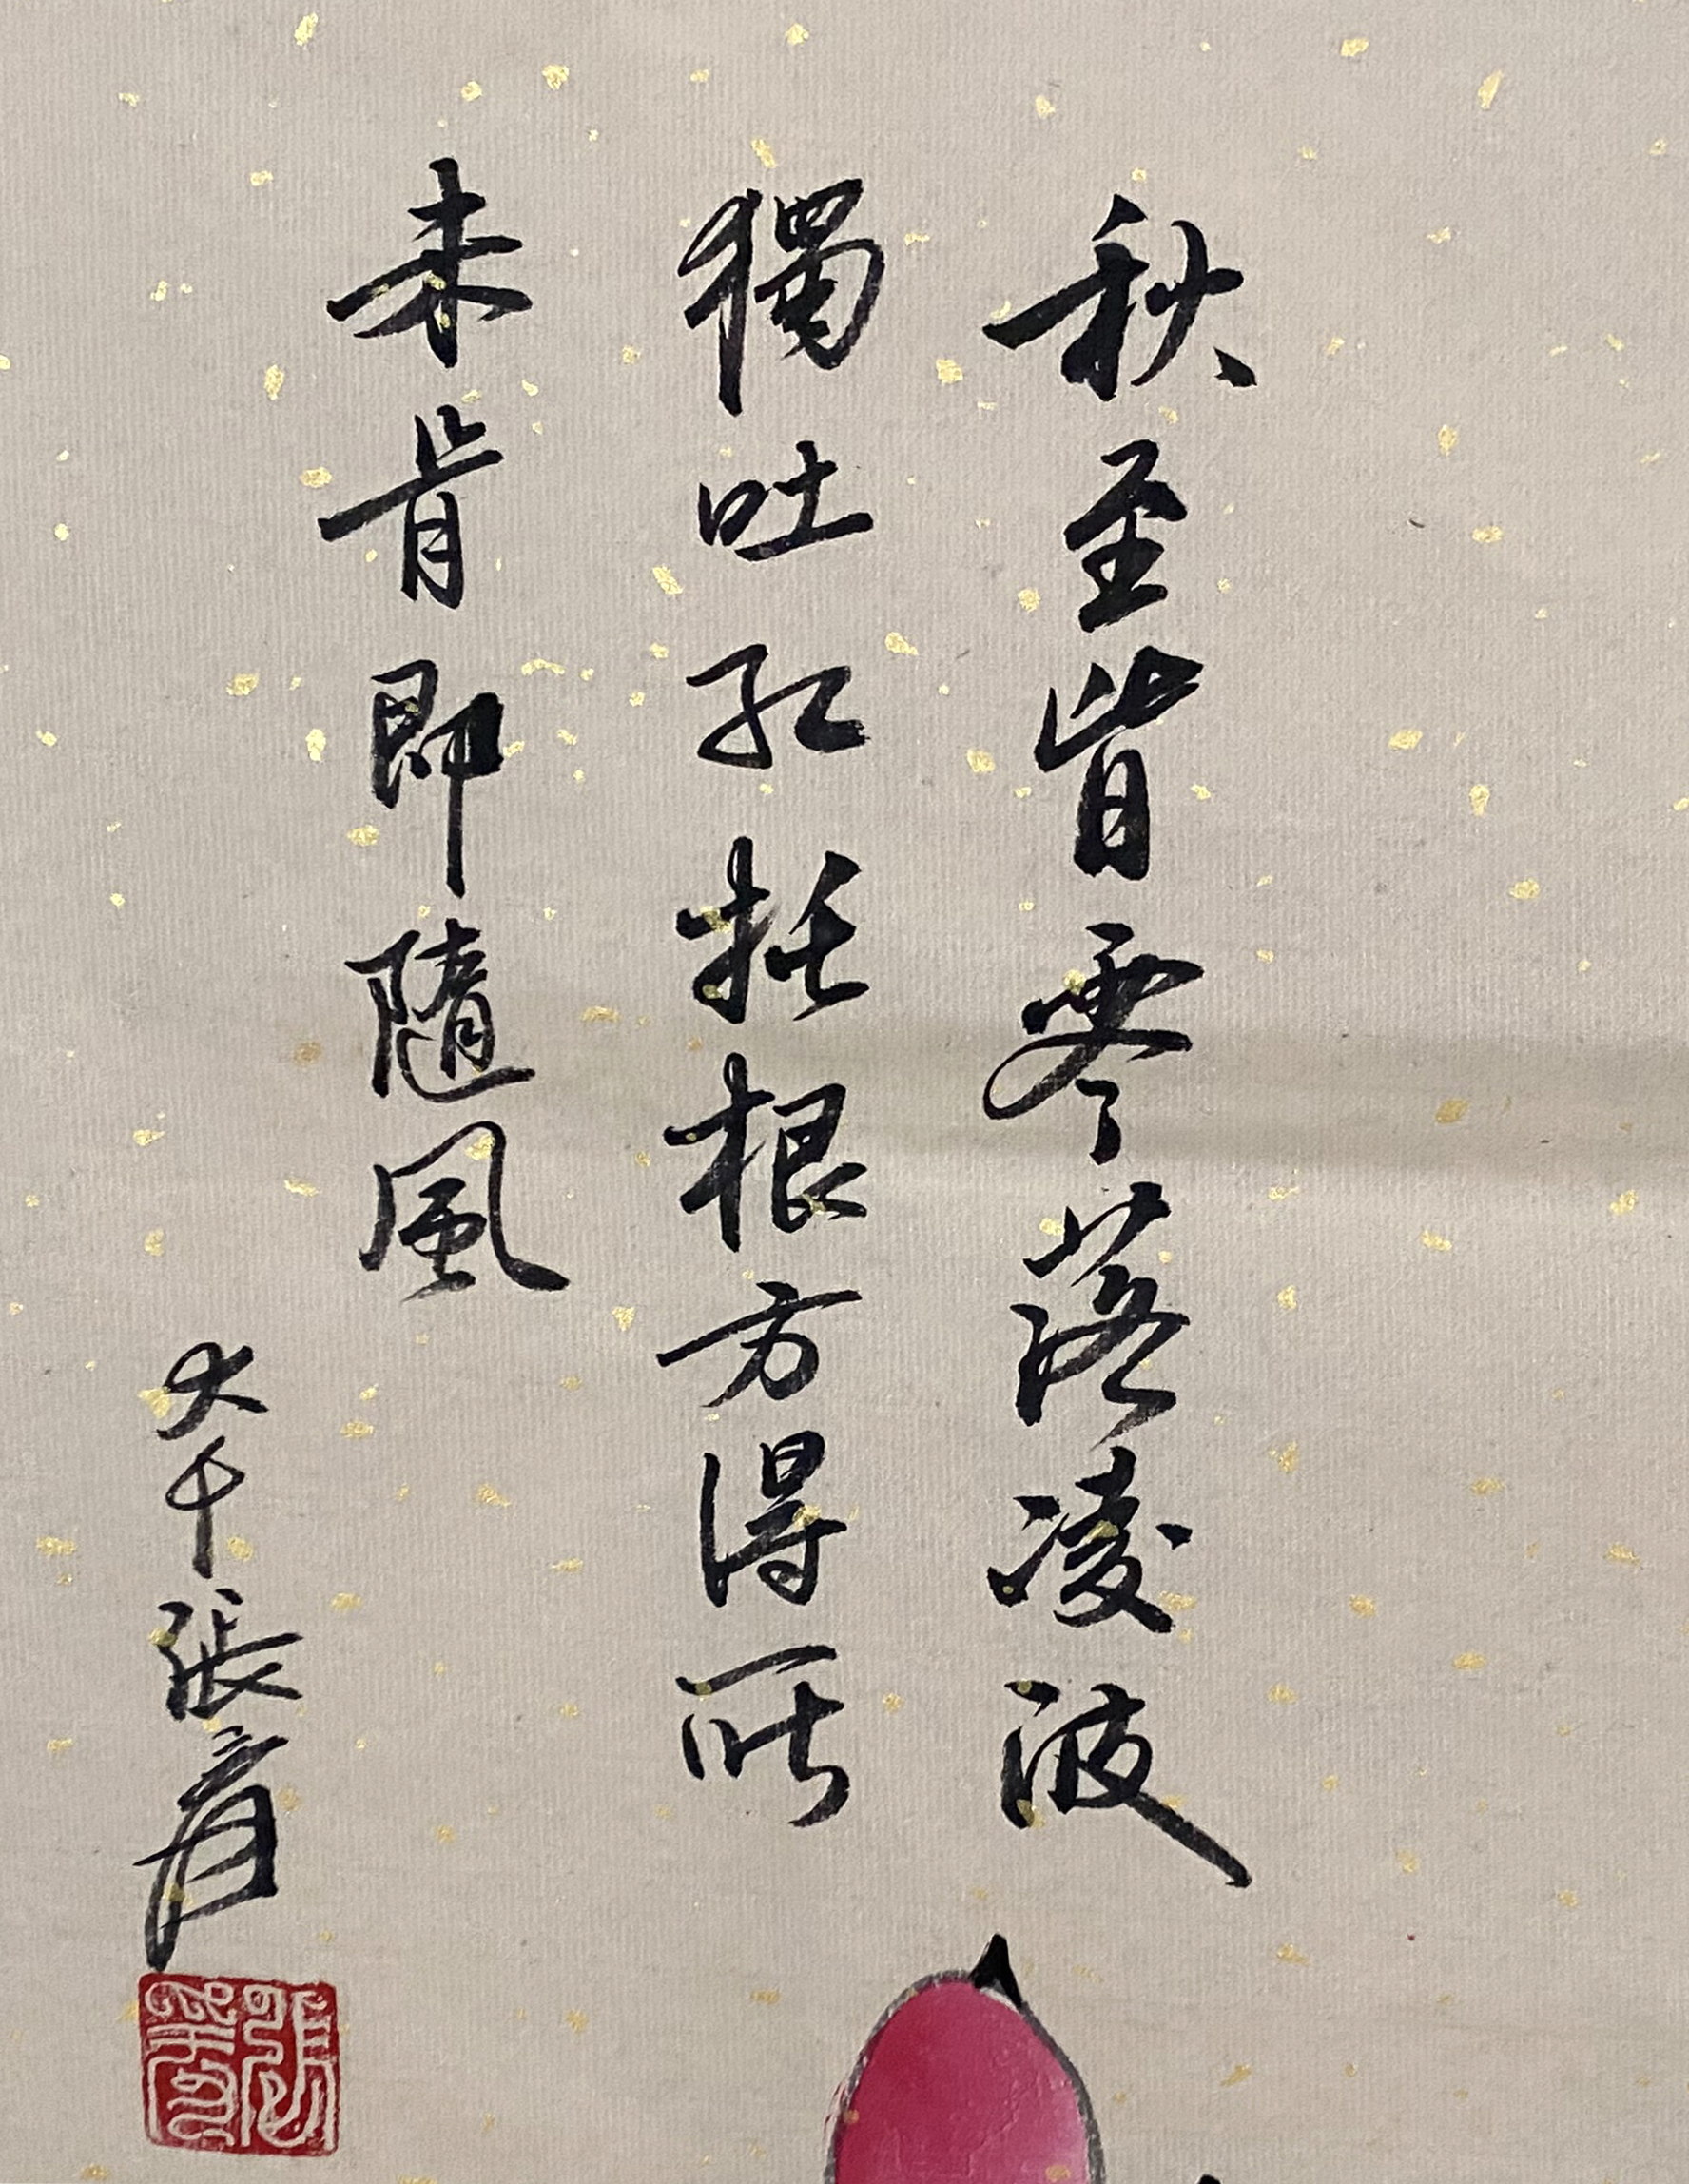 秋至皆零落凌波
獨吐紅托根方得所
未肯即隨風
大千張爰